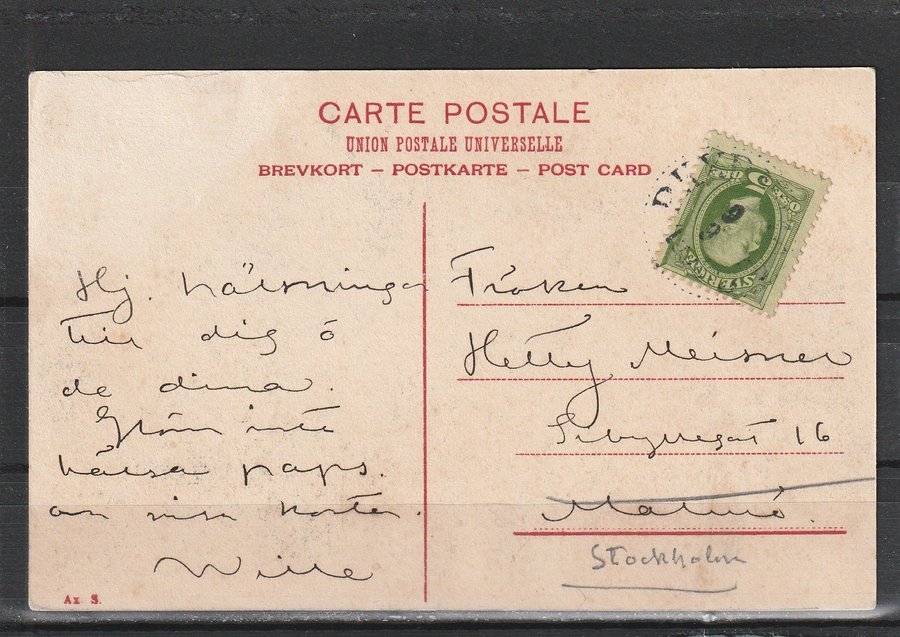 CARTE POSTALE
UNION POSTALE UNIVERSELLE
BREVKORT – POSTKARTE – POST CARD
Hj. hälsningar
till dig ó
de dina.
Glöm inte
hälsa paps.
korten.
Wille
Fröken
Hetty Meisner
16
Malmö.
Stockholm
SVERIGE
Ax. S.